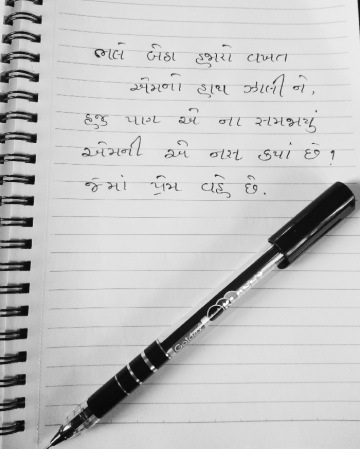 ભલે બેઠા હજારો વખત
એમનો હાથ ઝાલી ને,
હજુ પણ એ ના સમજાયું
એમની એ નસ ક્યાં છે!
જેમાં પ્રેમ વહે છે.